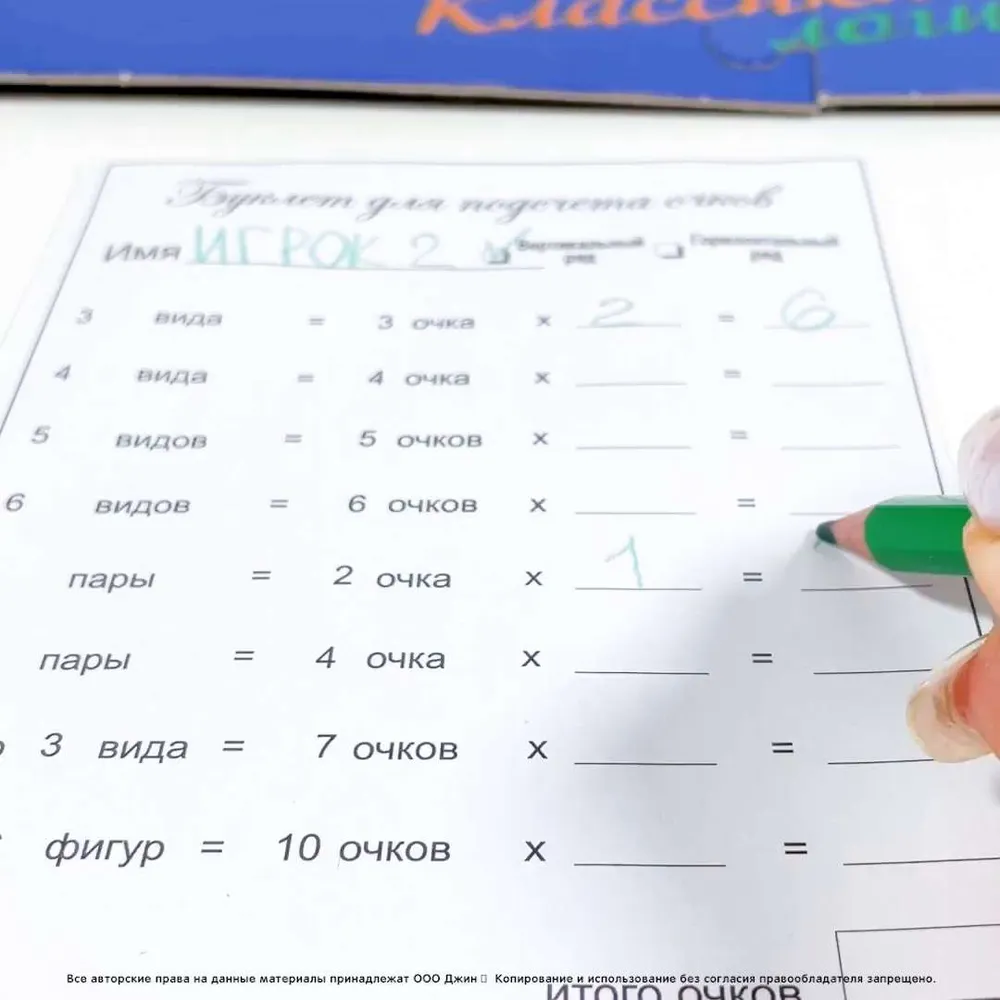 Классика
логи
Буклет для подсчета очков
Имя ИГРОК 2 Вертикальный ряд Горизонтальный ряд
3 вида = 3 очка x 2 = 6
4 вида = 4 очка x =
5 видов = 5 очков x =
6 видов = 6 очков x =
пары = 2 очка x 1 =
пары = 4 очка x =
3 вида = 7 очков x =
фигур = 10 очков x =
итого очков
Все авторские права на данные материалы принадлежат ООО Джин Копирование и использование без согласия правообладателя запрещено.